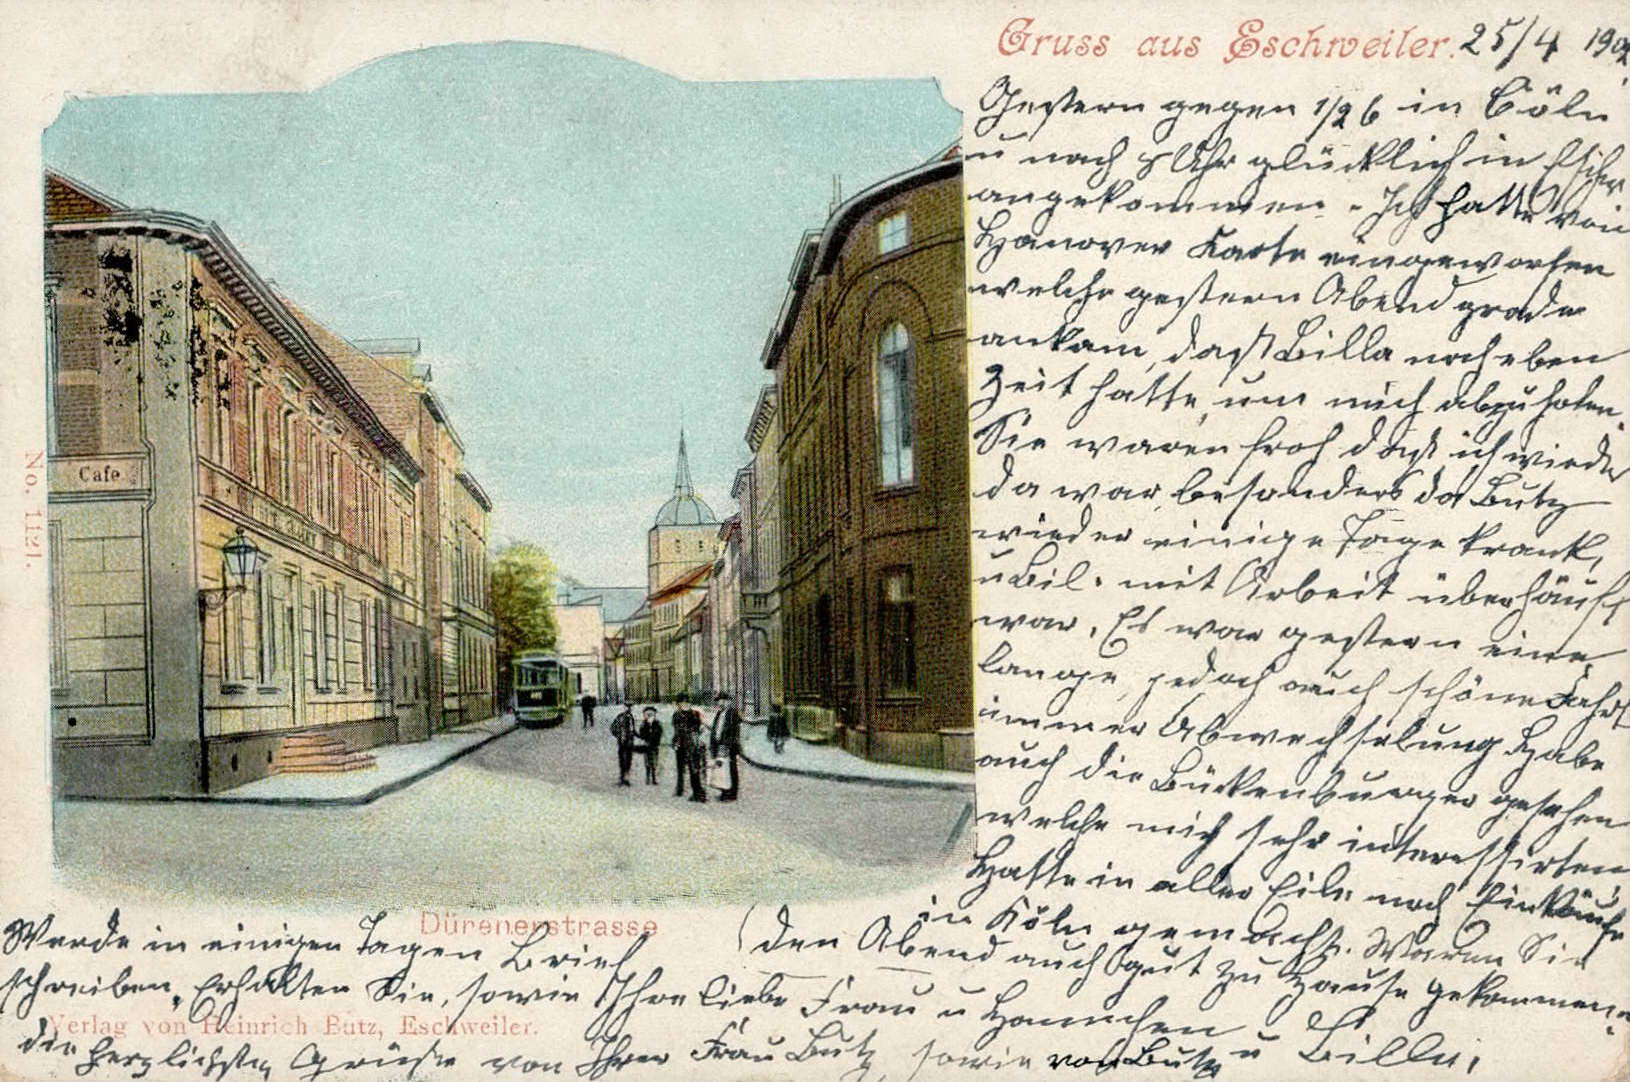 Gruss aus Eschweiler. 25/4 190
Gestern gegen 1/2 6 in Cöln
u nach 8 Uhr glücklich in Eschw
angekommen - Ich hatte von
Hanover Karte eingeworfen
welche gestern Abend grade
ankam, daß Billa noch eben
Zeit hatte, um mich abzuholen.
Sie waren froh daß ich wieder
da war, besonders da Butz
wieder einige Tage krank,
u Bil. mit Arbeit überhäuft
war. Es war gestern eine
lange, jedoch auch schöne Fahrt
immer Abwechselung. Habe
auch die Bückenburger gesehen
welche mich sehr interessirten
Hatte in aller Eile noch Einkäufe
in Köln gemacht. Waren Sie
(den Abend auch gut zu Hause gekommen.
Werde in einigen Tagen Brief
schreiben. Erhalten Sie, sowie Ihre liebe Frau u Hannchen
die herzlichsten Grüße von Ihrer Frau Butz sowie von Butz u Billa.
Cafe
No. 1121.
Dürenerstrasse
Verlag von Heinrich Butz, Eschweiler.